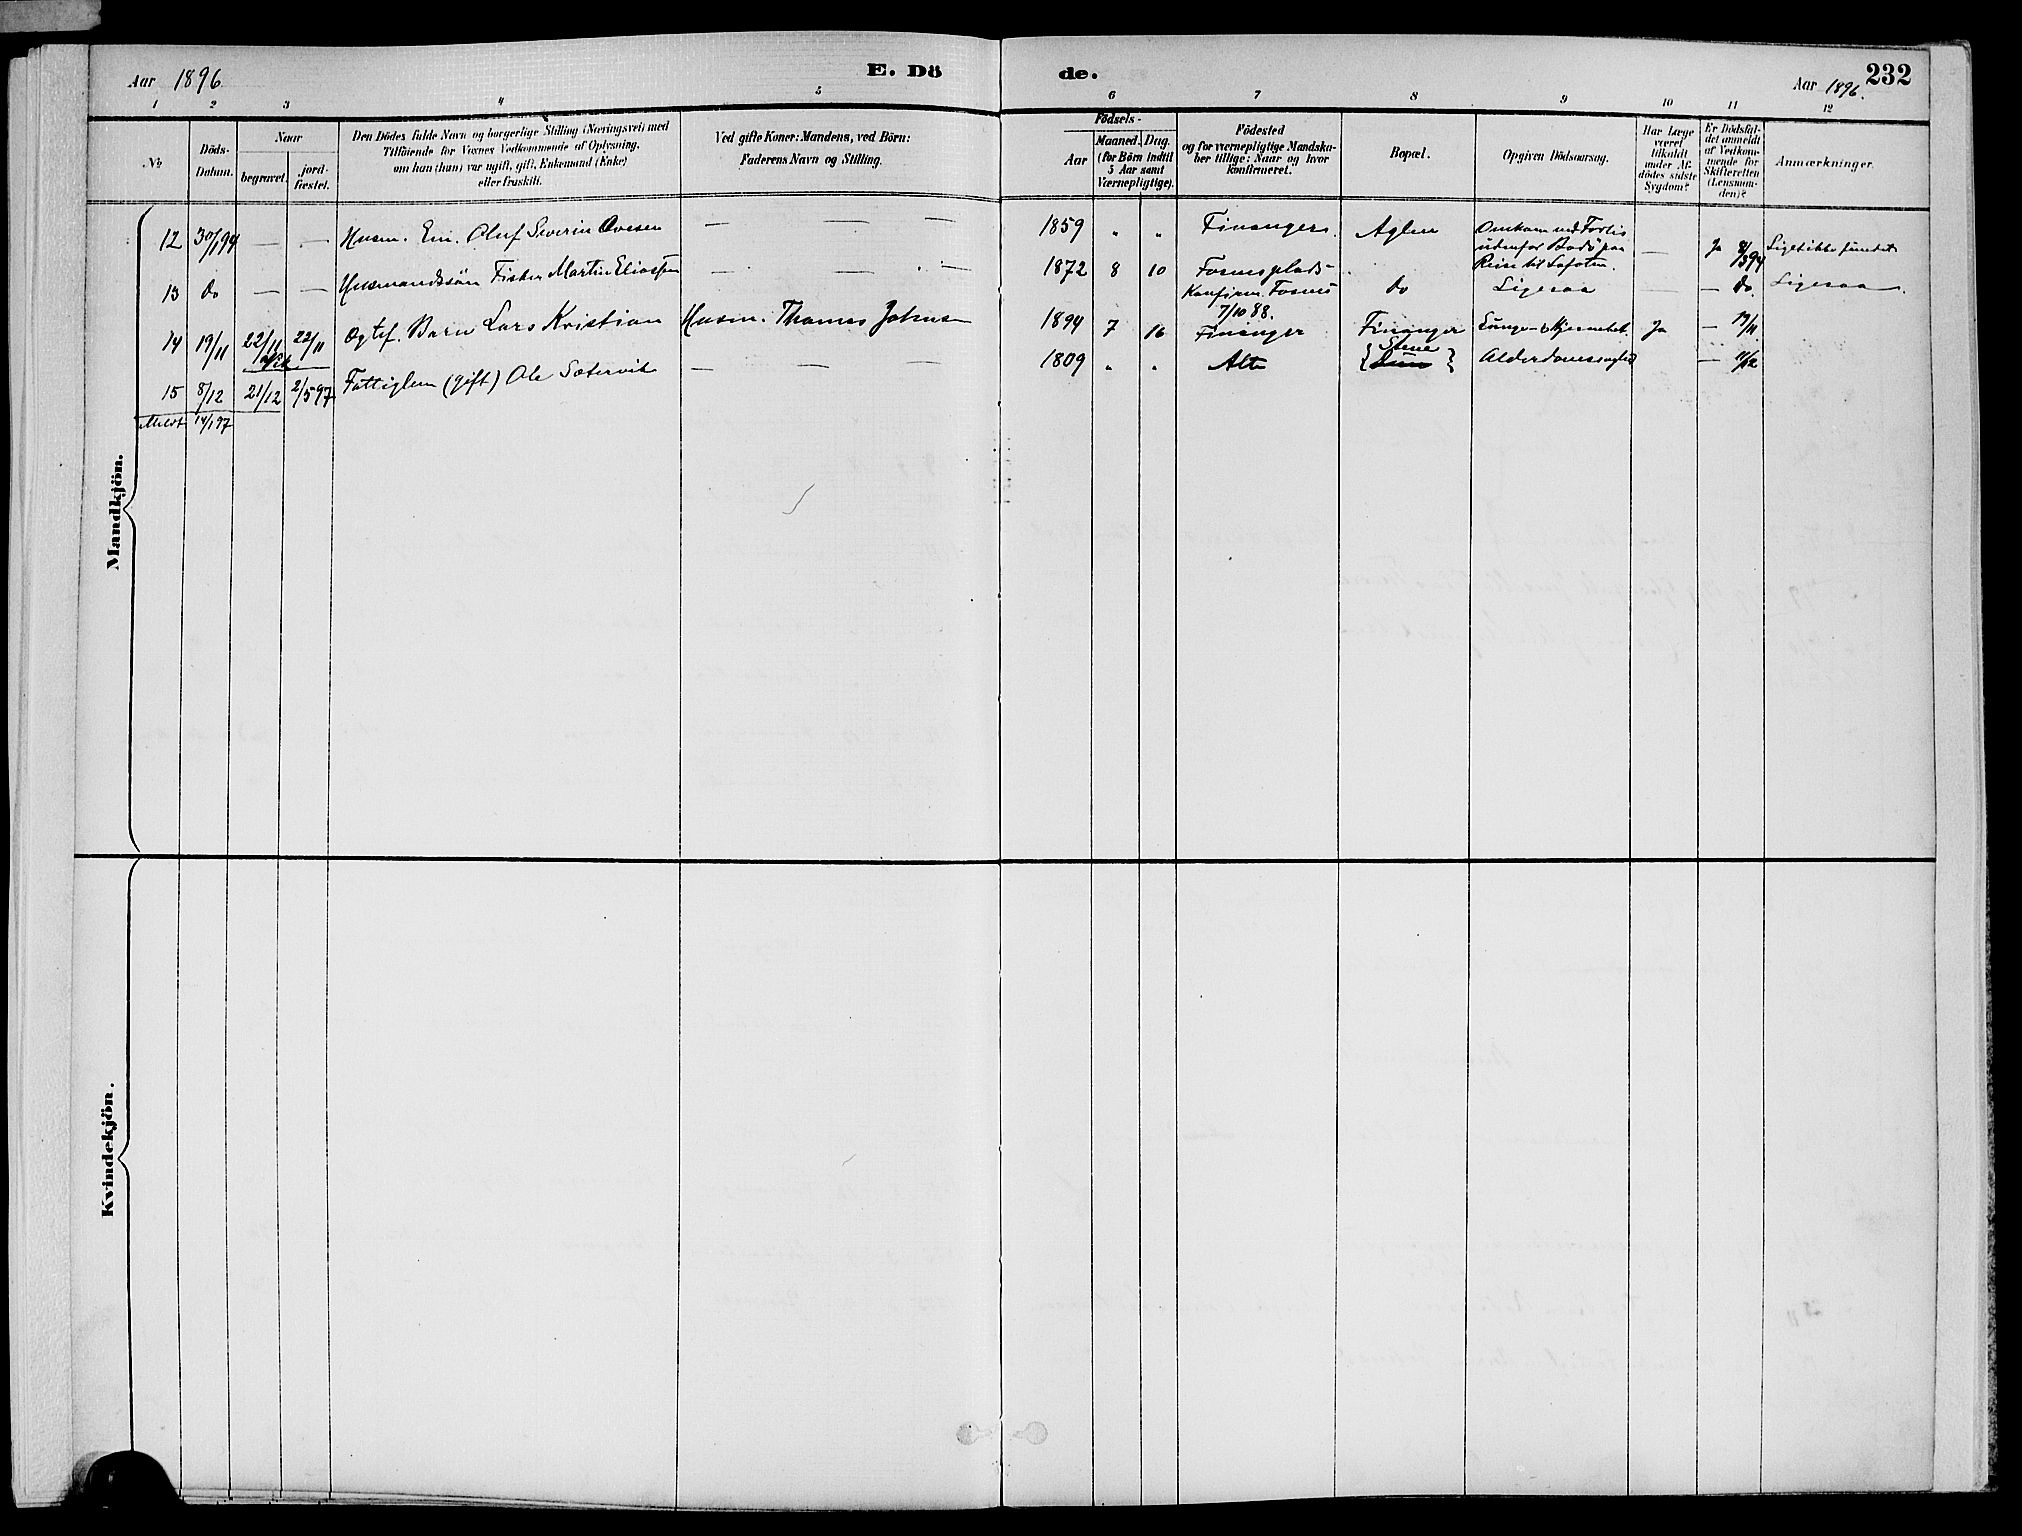 Aar 1896
E. Dö
de.
Aar 1896.
232
1 2 3 4 5 6 7 8 9 10 11 12
No
Döds-Datum.
Naar
begravet.
jord-fæstet.
Den Dödes fulde Navn og borgerlige Stilling (Næringsvei) med
Tilföiende for Voxnes Vedkommende af Oplysning,
om han (hun) var ugift, gift, Enkemand (Enke)
eller fraskilt.
Ved gifte Koner: Mandens, ved Börn:
Faderens Navn og Stilling.
Födsels-
Aar
Maaned. Dag.
(for Börn indtil
5 Aar samt
Værnepligtige).
Födested
og for værnepligtige Mandska-
ber tillige: Naar og hvor
konfirmeret.
Bopæl.
Opgiven Dödsaarsag.
Har Læge
været
tilkaldt
under Af-
dödes sidste
Sygdom?
Er Dödsfal-
det anmeldt
af Vedkom-
mende for
Skifteretten
(Lensman-
den)?
Anmærkninger.
Mandkjön.
12 30/1 94 — — Husm. Em. Oluf Severin Ovesen — — — 1859 " " Finanger. Aglen Omkom ved Forlis
udenfor Bodö paa
Reise til Lofoten. — Ja 8/3 94 Liget ikke fundet
13 do — — Husmandssön Fisker Martin Eliassen — — — 1872 8 10 Fosnesplads-
Konfirm. Fosnes
7/10 88. do Ligesaa — — do. Ligesaa.
14 19/11 22/11 22/11 Ægtef. Barn Lars Kristian Husm. Thomas Johnsen 1894 7 16 Finanger Finanger Lunge- & Hjernebet. Ja — 19/11
15 8/12 21/12 2/5 97 Fattiglem (gift) Ole Sætervik — — — 1809 " " Alte Stene Alderdomssvaghed — 11/12
Meldt 14/1 97
Kvindekjön.